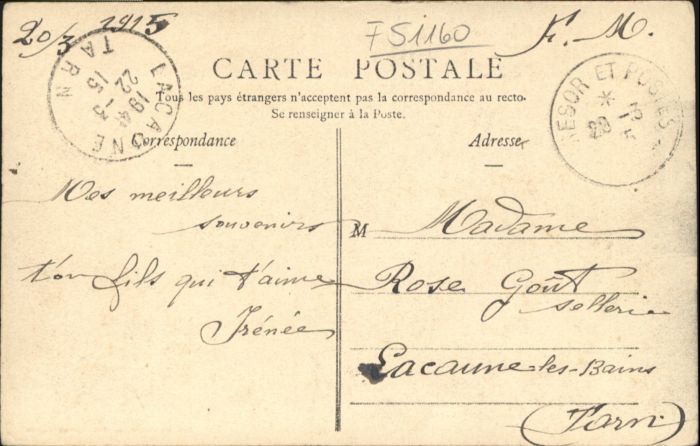 20/3 1915
FS1160
F. M.
CARTE POSTALE
Tous les pays étrangers n'acceptent pas la correspondance au recto.
Se renseigner à la Poste.
Correspondance
Adresse
LACAUNE
TARN
22-3
15
TRESOR ET POSTES
Mes meilleurs
souvenirs
ton fils qui t'aime
Irénée
M Madame
Rose Goût
sellerie
Lacaune-les-Bains
(Tarn)